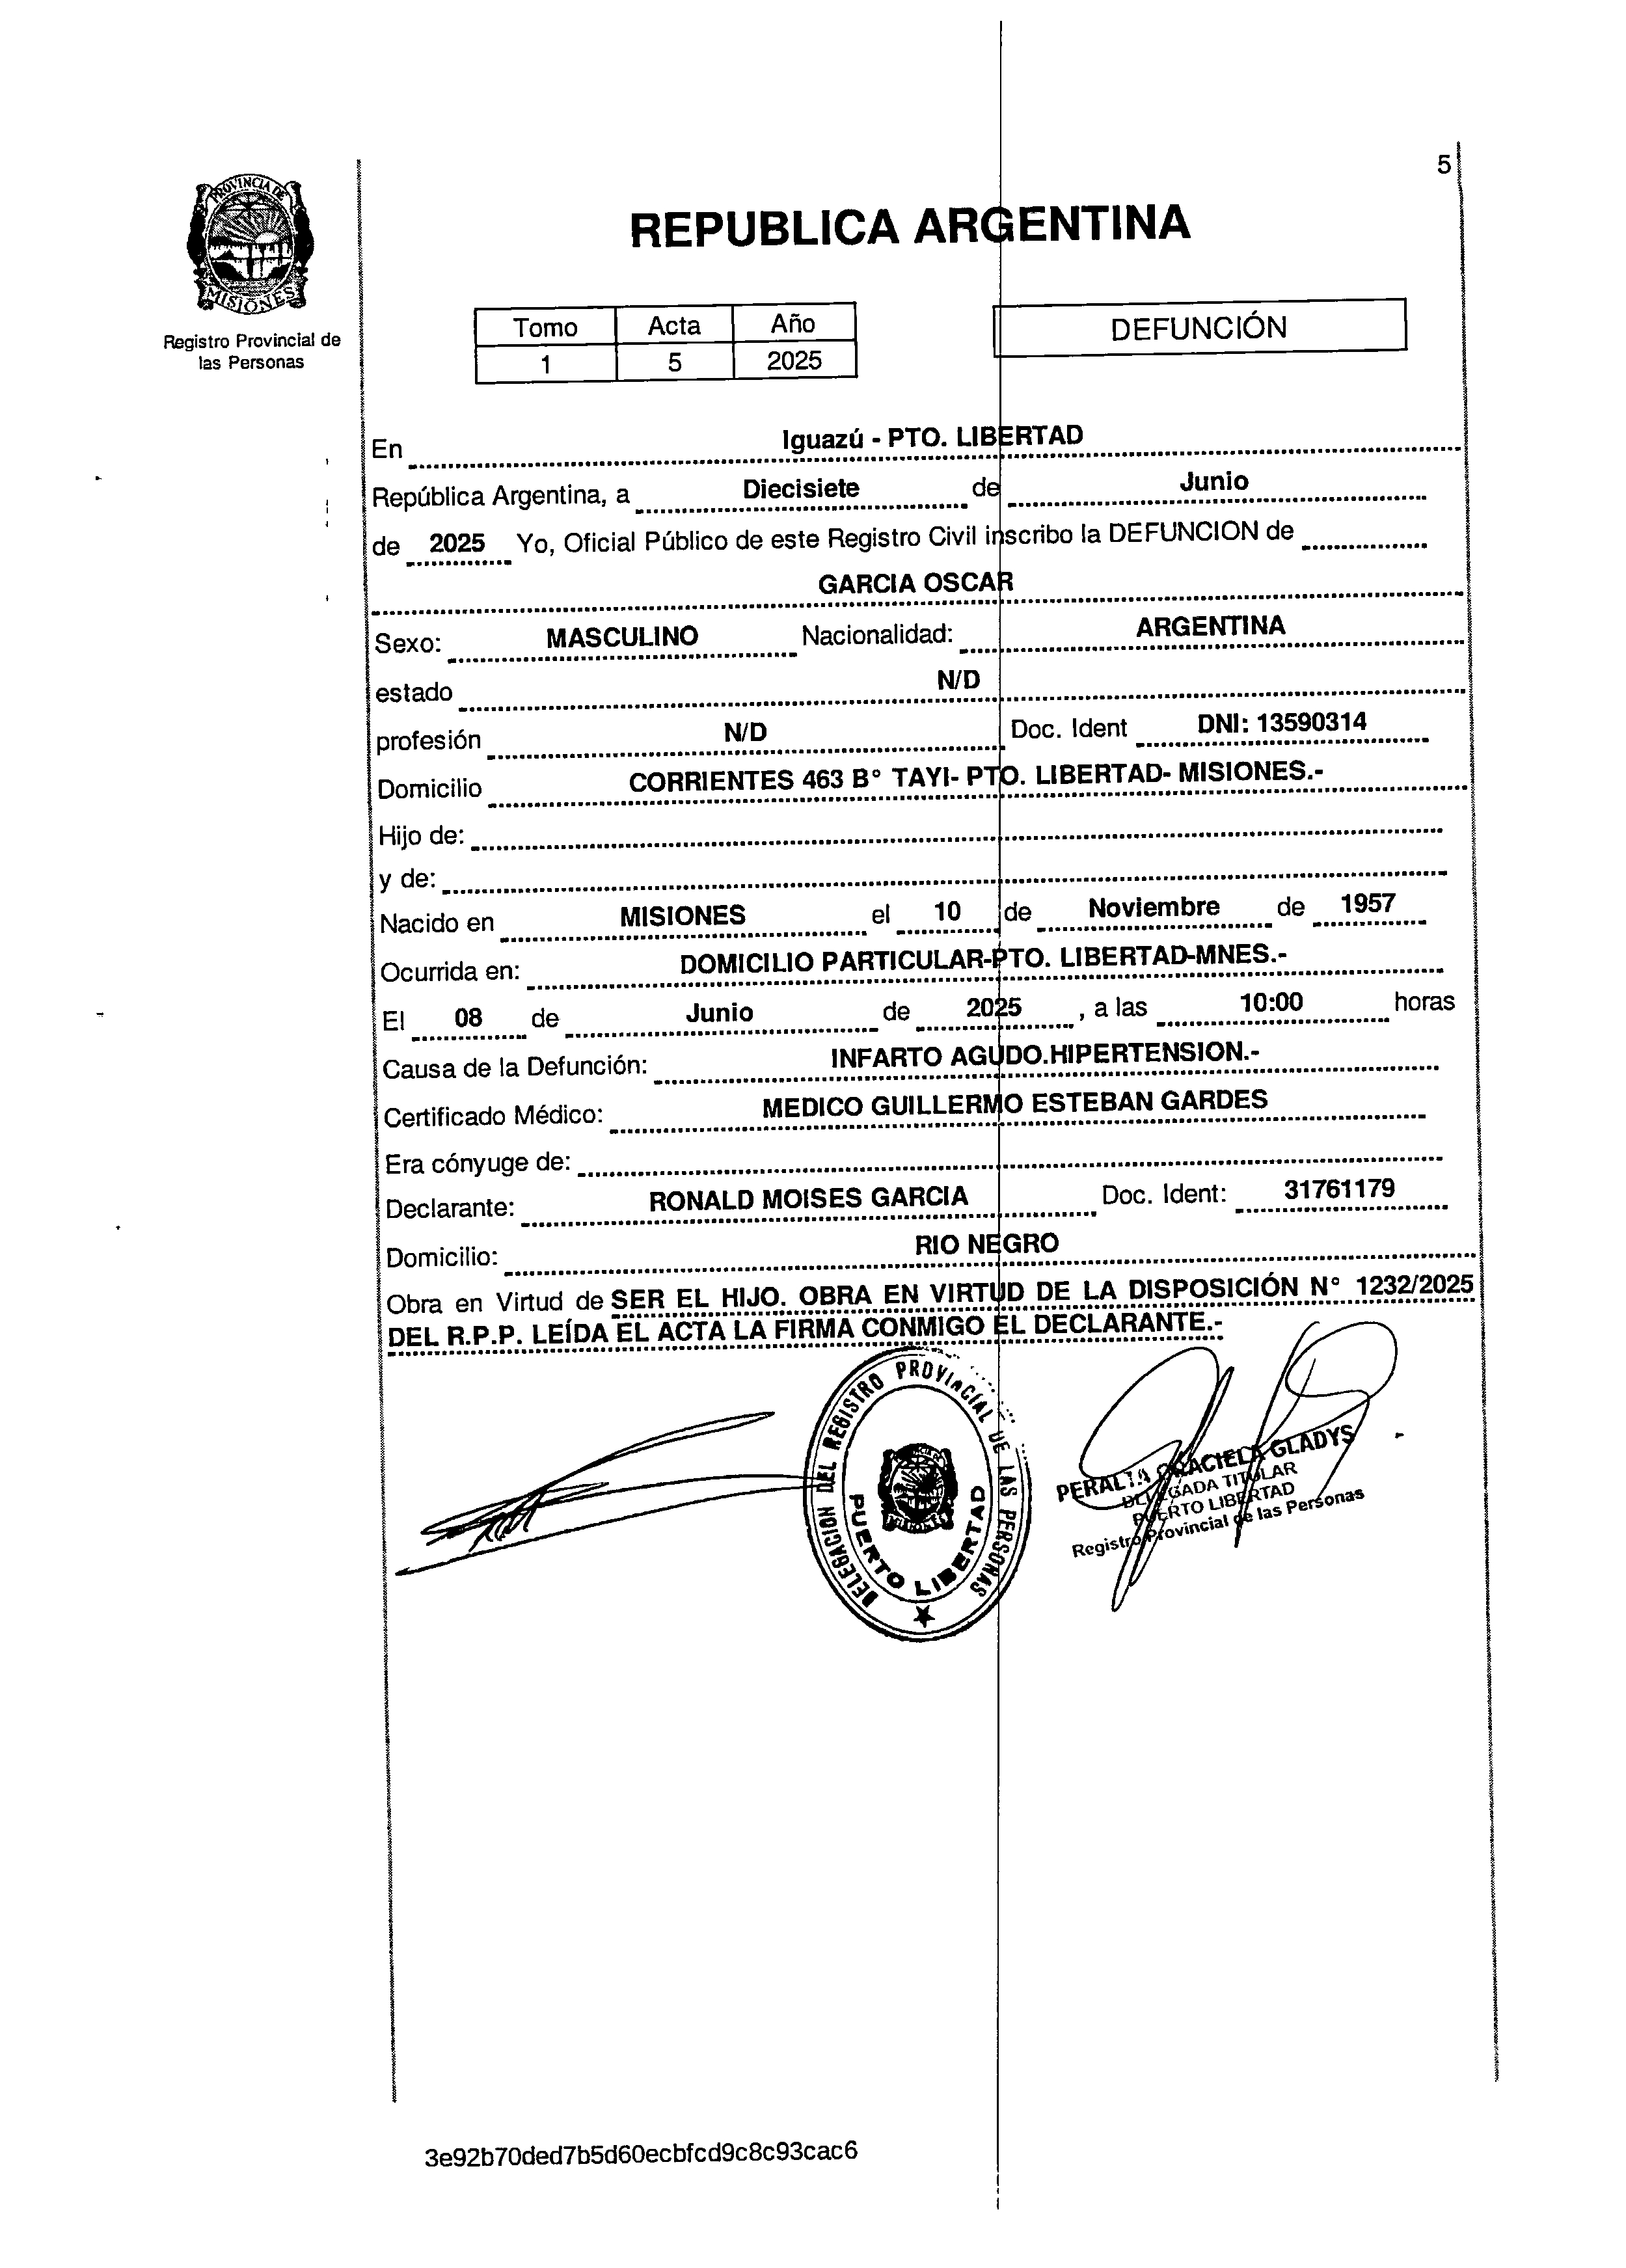 5
PROVINCIA DE
MISIONES
Registro Provincial de
las Personas
REPUBLICA ARGENTINA
Tomo Acta Año
1 5 2025
DEFUNCIÓN
En Iguazú - PTO. LIBERTAD
República Argentina, a Diecisiete de Junio
de 2025 Yo, Oficial Público de este Registro Civil inscribo la DEFUNCION de
GARCIA OSCAR
Sexo: MASCULINO Nacionalidad: ARGENTINA
estado N/D
profesión N/D Doc. Ident DNI: 13590314
Domicilio CORRIENTES 463 B° TAYI- PTO. LIBERTAD- MISIONES.-
Hijo de:
y de:
Nacido en MISIONES el 10 de Noviembre de 1957
Ocurrida en: DOMICILIO PARTICULAR-PTO. LIBERTAD-MNES.-
El 08 de Junio de 2025 , a las 10:00 horas
Causa de la Defunción: INFARTO AGUDO.HIPERTENSION.-
Certificado Médico: MEDICO GUILLERMO ESTEBAN GARDES
Era cónyuge de:
Declarante: RONALD MOISES GARCIA Doc. Ident: 31761179
Domicilio: RIO NEGRO
Obra en Virtud de SER EL HIJO. OBRA EN VIRTUD DE LA DISPOSICIÓN N° 1232/2025
DEL R.P.P. LEÍDA EL ACTA LA FIRMA CONMIGO EL DECLARANTE.-
DELEGACION DEL REGISTRO PROVINCIAL DE LAS PERSONAS
PUERTO LIBERTAD
PERALTA GRACIELA GLADYS
DELEGADA TITULAR
PUERTO LIBERTAD
Registro Provincial de las Personas
3e92b70ded7b5d60ecbfcd9c8c93cac6